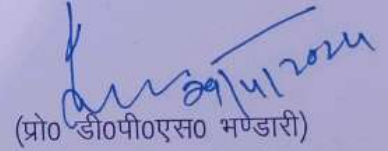 29/4/2024
(प्रो० डी०पी०एस० भण्डारी)